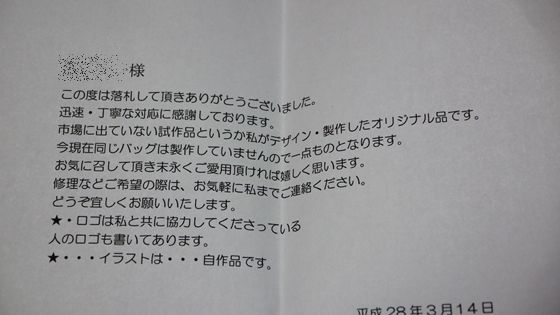 様
この度は落札して頂きありがとうございました。
迅速・丁寧な対応に感謝しております。
市場に出ていない試作品というか私がデザイン・製作したオリジナル品です。
今現在同じバッグは製作していませんので一点ものとなります。
お気に召して頂き末永くご愛用頂ければ嬉しく思います。
修理などご希望の際は、お気軽に私までご連絡ください。
どうぞ宜しくお願いいたします。
★・ロゴは私と共に協力してくださっている
人のロゴも書いてあります。
★・・・イラストは・・・自作品です。
平成28年3月14日